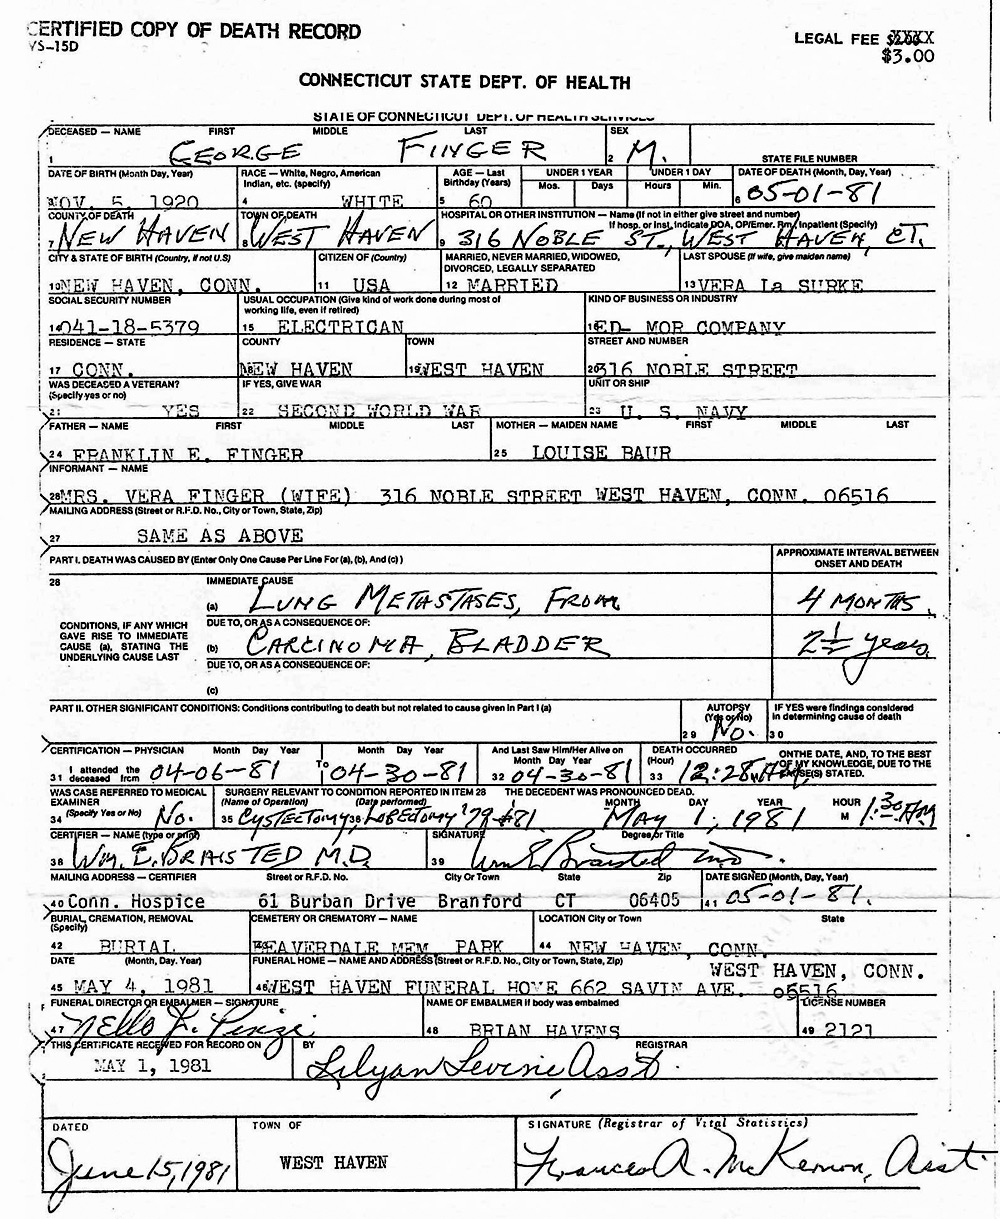 CERTIFIED COPY OF DEATH RECORD
VS-15D
LEGAL FEE
$3.00
CONNECTICUT STATE DEPT. OF HEALTH
STATE OF CONNECTICUT DEPT. OF HEALTH SERVICES
DECEASED — NAME FIRST MIDDLE LAST SEX
1 GEORGE FINGER 2 M. STATE FILE NUMBER
DATE OF BIRTH (Month Day, Year) RACE — White, Negro, American Indian, etc. (specify) AGE — Last Birthday (Years) UNDER 1 YEAR Mos. Days UNDER 1 DAY Hours Min. DATE OF DEATH (Month, Day, Year)
NOV. 5, 1920 4 WHITE 5 60 6 05-01-81
COUNTY OF DEATH TOWN OF DEATH HOSPITAL OR OTHER INSTITUTION — Name (If not in either give street and number) If hosp. or Inst. indicate DOA, OP/Emer. Rm, Inpatient (Specify)
7 NEW HAVEN 8 WEST HAVEN 9 316 NOBLE ST., WEST HAVEN, CT.
CITY & STATE OF BIRTH (Country, if not U.S) CITIZEN OF (Country) MARRIED, NEVER MARRIED, WIDOWED, DIVORCED, LEGALLY SEPARATED LAST SPOUSE (If wife, give maiden name)
10 NEW HAVEN, CONN. 11 USA 12 MARRIED 13 VERA La SURKE
SOCIAL SECURITY NUMBER USUAL OCCUPATION (Give kind of work done during most of working life, even if retired) KIND OF BUSINESS OR INDUSTRY
14 041-18-5379 15 ELECTRICAN 16 ED- MOR COMPANY
RESIDENCE — STATE COUNTY TOWN STREET AND NUMBER
17 CONN. 18 NEW HAVEN 19 WEST HAVEN 20 316 NOBLE STREET
WAS DECEASED A VETERAN? (Specify yes or no) IF YES, GIVE WAR UNIT OR SHIP
21 YES 22 SECOND WORLD WAR 23 U. S. NAVY
FATHER — NAME FIRST MIDDLE LAST MOTHER — MAIDEN NAME FIRST MIDDLE LAST
24 FRANKLIN E. FINGER 25 LOUISE BAUR
INFORMANT — NAME
26 MRS. VERA FINGER (WIFE) 316 NOBLE STREET WEST HAVEN, CONN. 06516
MAILING ADDRESS (Street or R.F.D. No., City or Town, State, Zip)
27 SAME AS ABOVE
PART I. DEATH WAS CAUSED BY (Enter Only One Cause Per Line For (a), (b), And (c) ) APPROXIMATE INTERVAL BETWEEN ONSET AND DEATH
28 IMMEDIATE CAUSE
(a) LUNG METASTASES, FROM 4 MONTHS,
CONDITIONS, IF ANY WHICH GAVE RISE TO IMMEDIATE CAUSE (a), STATING THE UNDERLYING CAUSE LAST
DUE TO, OR AS A CONSEQUENCE OF:
(b) CARCINOMA, BLADDER 2½ years,
DUE TO, OR AS A CONSEQUENCE OF:
(c)
PART II. OTHER SIGNIFICANT CONDITIONS: Conditions contributing to death but not related to cause given in Part I (a) AUTOPSY (Yes or No) IF YES were findings considered in determining cause of death
29 No. 30
CERTIFICATION — PHYSICIAN Month Day Year Month Day Year And Last Saw Him/Her Alive on Month Day Year DEATH OCCURRED (Hour) ON THE DATE, AND, TO THE BEST OF MY KNOWLEDGE, DUE TO THE CAUSE(S) STATED.
31 I attended the deceased from 04-06-81 To 04-30-81 32 04-30-81 33 12:28 AM
WAS CASE REFERRED TO MEDICAL EXAMINER SURGERY RELEVANT TO CONDITION REPORTED IN ITEM 28 THE DECEDENT WAS PRONOUNCED DEAD.
(Name of Operation) (Date performed) MONTH DAY YEAR HOUR
34 (Specify Yes or No) No. 35 CYSTECTOMY, 36 LOBEDOMY '79 & '81 MAY 1, 1981 M 1:30 AM
CERTIFIER — NAME (type or print) SIGNATURE Degree or Title
38 WM. E. BRAISTED M.D. 39 Wm E Braisted MD.
MAILING ADDRESS — CERTIFIER Street or R.F.D. No. City Or Town State Zip DATE SIGNED (Month, Day, Year)
40 Conn. Hospice 61 Burban Drive Branford CT 06405 41 05-01-81.
BURIAL, CREMATION, REMOVAL (Specify) CEMETERY OR CREMATORY — NAME LOCATION City or Town State
42 BURIAL BEAVERDALE MEM PARK 44 NEW HAVEN, CONN.
DATE (Month, Day. Year) FUNERAL HOME — NAME AND ADDRESS (Street or R.F.D. No., City or Town, State, Zip) WEST HAVEN, CONN.
45 MAY 4, 1981 46 WEST HAVEN FUNERAL HOME 662 SAVIN AVE. 06516
FUNERAL DIRECTOR OR EMBALMER — SIGNATURE NAME OF EMBALMER if body was embalmed LICENSE NUMBER
47 48 BRIAN HAVENS 49 2121
THIS CERTIFICATE RECEIVED FOR RECORD ON BY REGISTRAR
MAY 1, 1981 Lilyan Levine Asst.
DATED TOWN OF SIGNATURE (Registrar of Vital Statistics)
June 15, 1981 WEST HAVEN Frances A. McKernon, Asst.